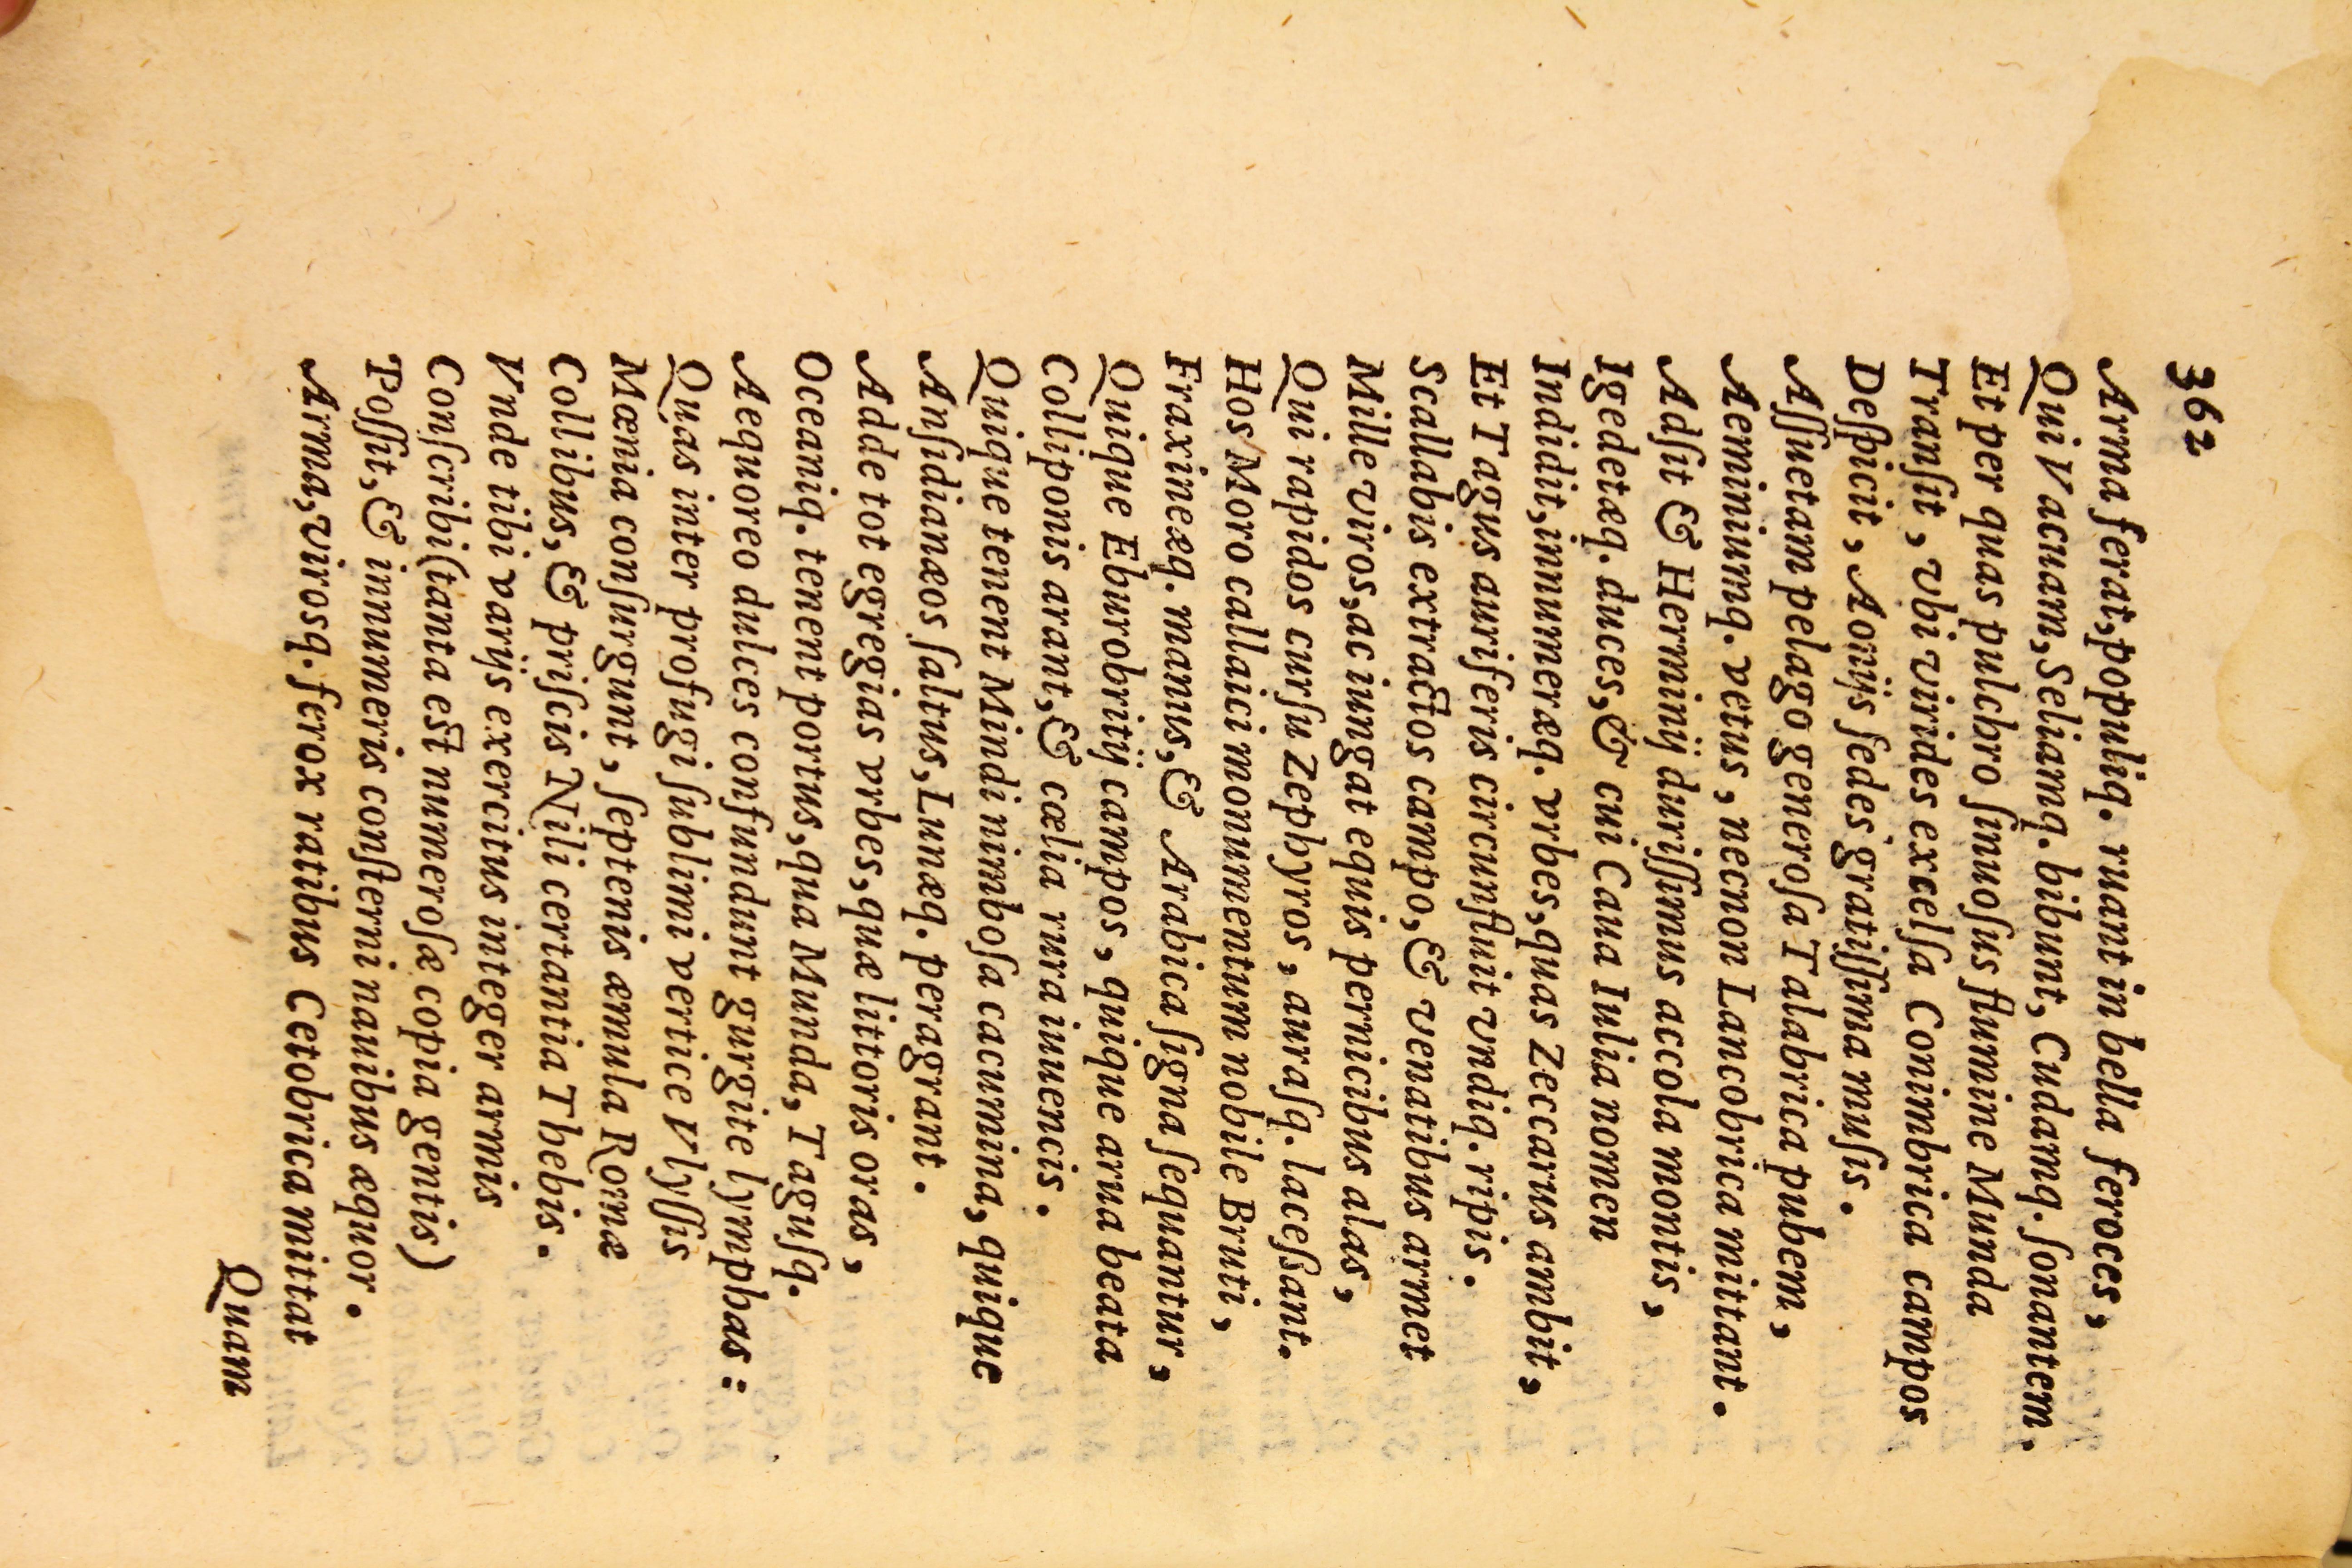 362
Arma ferat, populiq. ruant in bella feroces,
Qui Vacuam, Seliamq. bibunt, Cudamq. ſonantem.
Et per quas pulchro ſinuoſus flumine Munda
Tranſit, vbi virides excelſa Conimbrica campos
Deſpicit, Aonijs ſedes gratiſſima muſis.
Aſſuetam pelago generoſa Talabrica pubem,
Aeminiumq. vetus, necnon Lancobrica mittant.
Adſit & Herminij duriſſimus accola montis,
Igedetæq. duces, & cui Caua Iulia nomen
Indidit, innumeræq. vrbes, quas Zeccarus ambit,
Et Tagus auriferis circunfluit vndiq. ripis.
Scallabis extractos campo, & venatibus armet
Mille viros, ac iungat equis pernicibus alas,
Qui rapidos curſu Zephyros, auraſq. laceſſant.
Hos Moro callaici monumentum nobile Bruti,
Fraxineæq. manus, & Arabica ſigna ſequantur,
Quique Eburobritij campos, quique arua beata
Colliponis arant, & cœlia rura iuuencis.
Quique tenent Mindi nimboſa cacumina, quique
Anſidianæos ſaltus, Lunæq. peragrant.
Adde tot egregias vrbes, quæ littoris oras,
Oceaniq. tenent portus, qua Munda, Taguſq.
Aequoreo dulces confundunt gurgite lymphas:
Quas inter profugi ſublimi vertice Vlyſſis
Mœnia conſurgunt, ſeptenis æmula Romæ
Collibus, & priſcis Nili certantia Thebis.
Vnde tibi varijs exercitus integer armis
Conſcribi (tanta eſt numeroſæ copia gentis)
Poſſit, & innumeris conſterni nauibus æquor.
Arma, virosq. ferox ratibus Cetobrica mittat
Quam